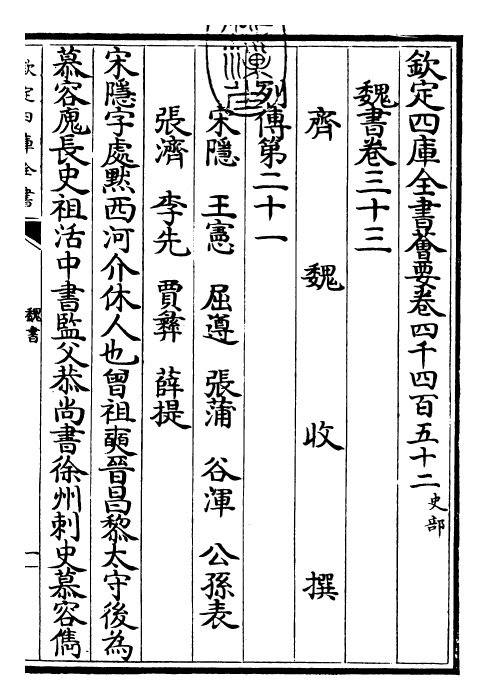 欽定四庫全書薈要卷四千四百五十二史部
魏書卷三十三
齊魏收撰
列傳第二十一
宋隱 王憲 屈遵 張蒲 谷渾 公孫表
張濟 李先 賈彝 薛提
宋隱字處黙西河介休人也曾祖奭晉昌黎太守後為
慕容廆長史祖活中書監父恭尚書徐州刺史慕容儁
欽定四庫全書
魏書
一